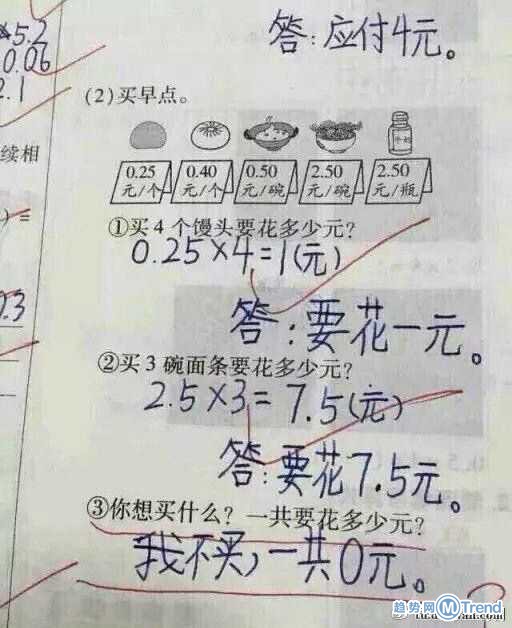 ×5.2
0.06
2.1
答:应付4元。
(2)买早点。
续相
0.25 0.40 0.50 2.50 2.50
元/个 元/个 元/碗 元/碗 元/瓶
①买4个馒头要花多少元?
0.25×4=1(元)
0.3
答:要花一元。
②买3碗面条要花多少元?
2.5×3=7.5(元)
答:要花7.5元。
③你想买什么?一共要花多少元?
我不买,一共0元。
趋势网 M Trend